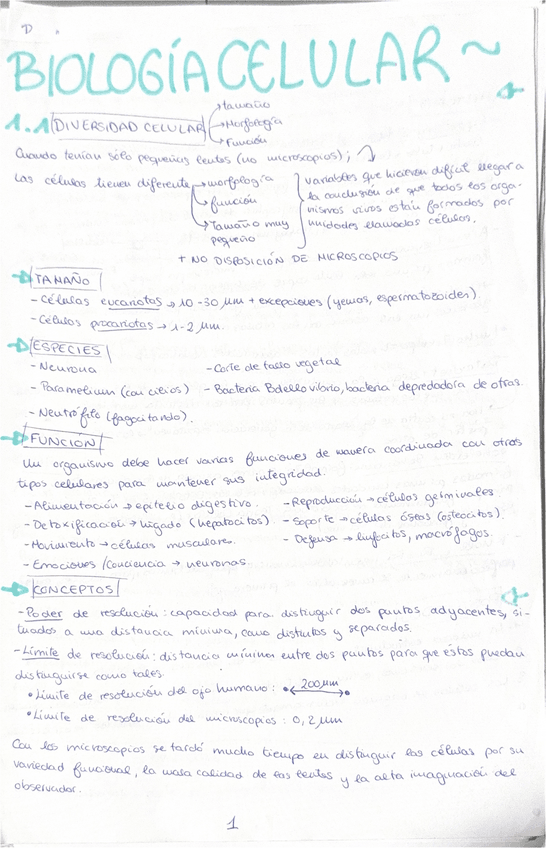 BIOLOGÍA CELULAR ~
1.1 DIVERSIDAD CELULAR → tamaño
→ Morfología
→ Función
Cuando tenían sólo pequeñas lentes (no microscopios);
Las células tienen diferente → morfología
→ función
→ Tamaño muy pequeño
variables que hicieron difícil llegar a
la conclusión de que todos los orga-
nismos vivos están formados por
unidades llamadas células.
+ NO DISPOSICIÓN DE MICROSCOPIOS
→ TAMAÑO
- Células eucariotas → 10-30 µm + excepciones (yemas, espermatozoides)
- Células procariotas → 1-2 µm.
→ ESPECIES
- Neurona
- Corte de tallo vegetal
- Paramelium (con cilios)
- Bacteria Bdellovibrio, bacteria depredadora de otras.
- Neutrófilo (fagocitando).
→ FUNCIÓN
Un organismo debe hacer varias funciones de manera coordinada con otros
tipos celulares para mantener sus integridad.
- Alimentación → epitelio digestivo.
- Reproducción → células germinales.
- Detoxificación → hígado (hepatocitos).
- Soporte → células óseas (osteocitos).
- Movimiento → células musculares.
- Defensa → linfocitos, macrófagos.
- Emociones / conciencia → neuronas.
→ CONCEPTOS
- Poder de resolución: capacidad para distinguir dos puntos adyacentes, si-
tuados a una distancia mínima, como distintos y separados.
- Límite de resolución: distancia mínima entre dos puntos para que estos puedan
distinguirse como tales.
• Límite de resolución del ojo humano: 200 µm
• Límite de resolución del microscopios: 0,2 µm
Con los microscopios se tardó mucho tiempo en distinguir las células por su
variedad funcional, la mala calidad de las lentes y la alta imaginación del
observador.
1